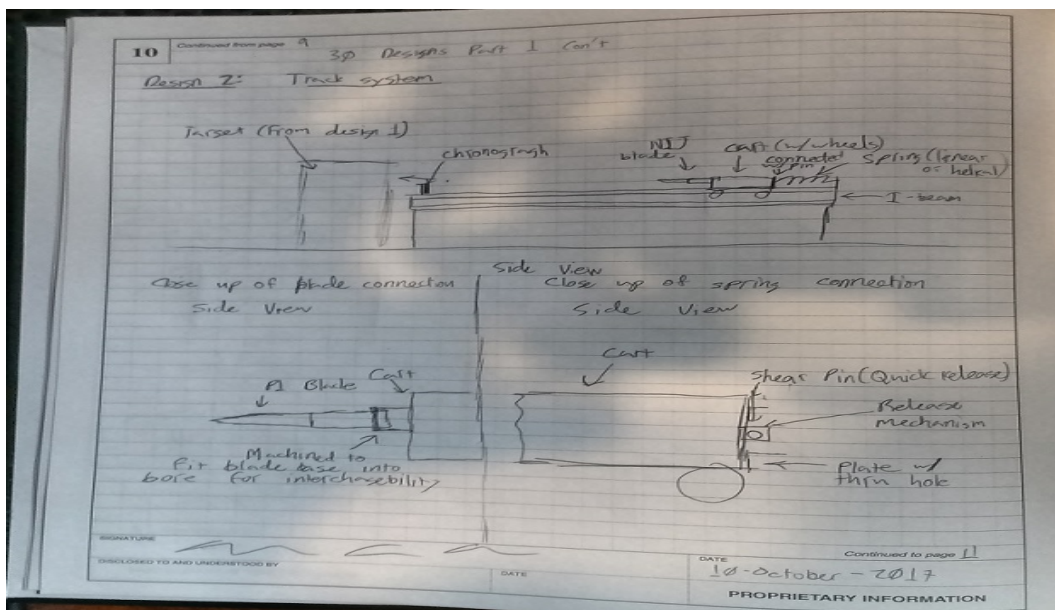 10 Continued from page 9
30 Designs Part 1 Con't
Design 2: Track system
Target (From design 1)
chronograph
NIJ blade
cart (w/wheels)
connected w/ pin
Spring (linear or helical)
I-beam
Side View
Close up of blade connection
Side View
Close up of spring connection
Side View
P1 Blade
Cart
Machined to
Fit blade base into
bore for interchasebility
Cart
Shear Pin (Quick release)
Release
mechanism
Plate w/
thru hole
SIGNATURE
DISCLOSED TO AND UNDERSTOOD BY
DATE
DATE
10-October-2017
Continued to page 11
PROPRIETARY INFORMATION